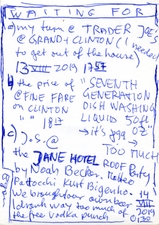 WAITING FOR
a) my turn @ TRADER JOE'S
@ GRAND + CLINTON (I needed
to get out of the house)
13 VIII 2019 17
b) the price of "SEVENTH
@FINE FARE GENERATION
on CLINTON DISH WASHING
" 18 LIQUID 50 fl
→ it's $99 OZ"
c) J.S. @ TOO MUCH
the JANE HOTEL ROOF Party
by Noah Becker, Matteo
Kurt Bigenho 14
We brought our own beer VIII
drank way too much of 2019
the free vodka punch 01